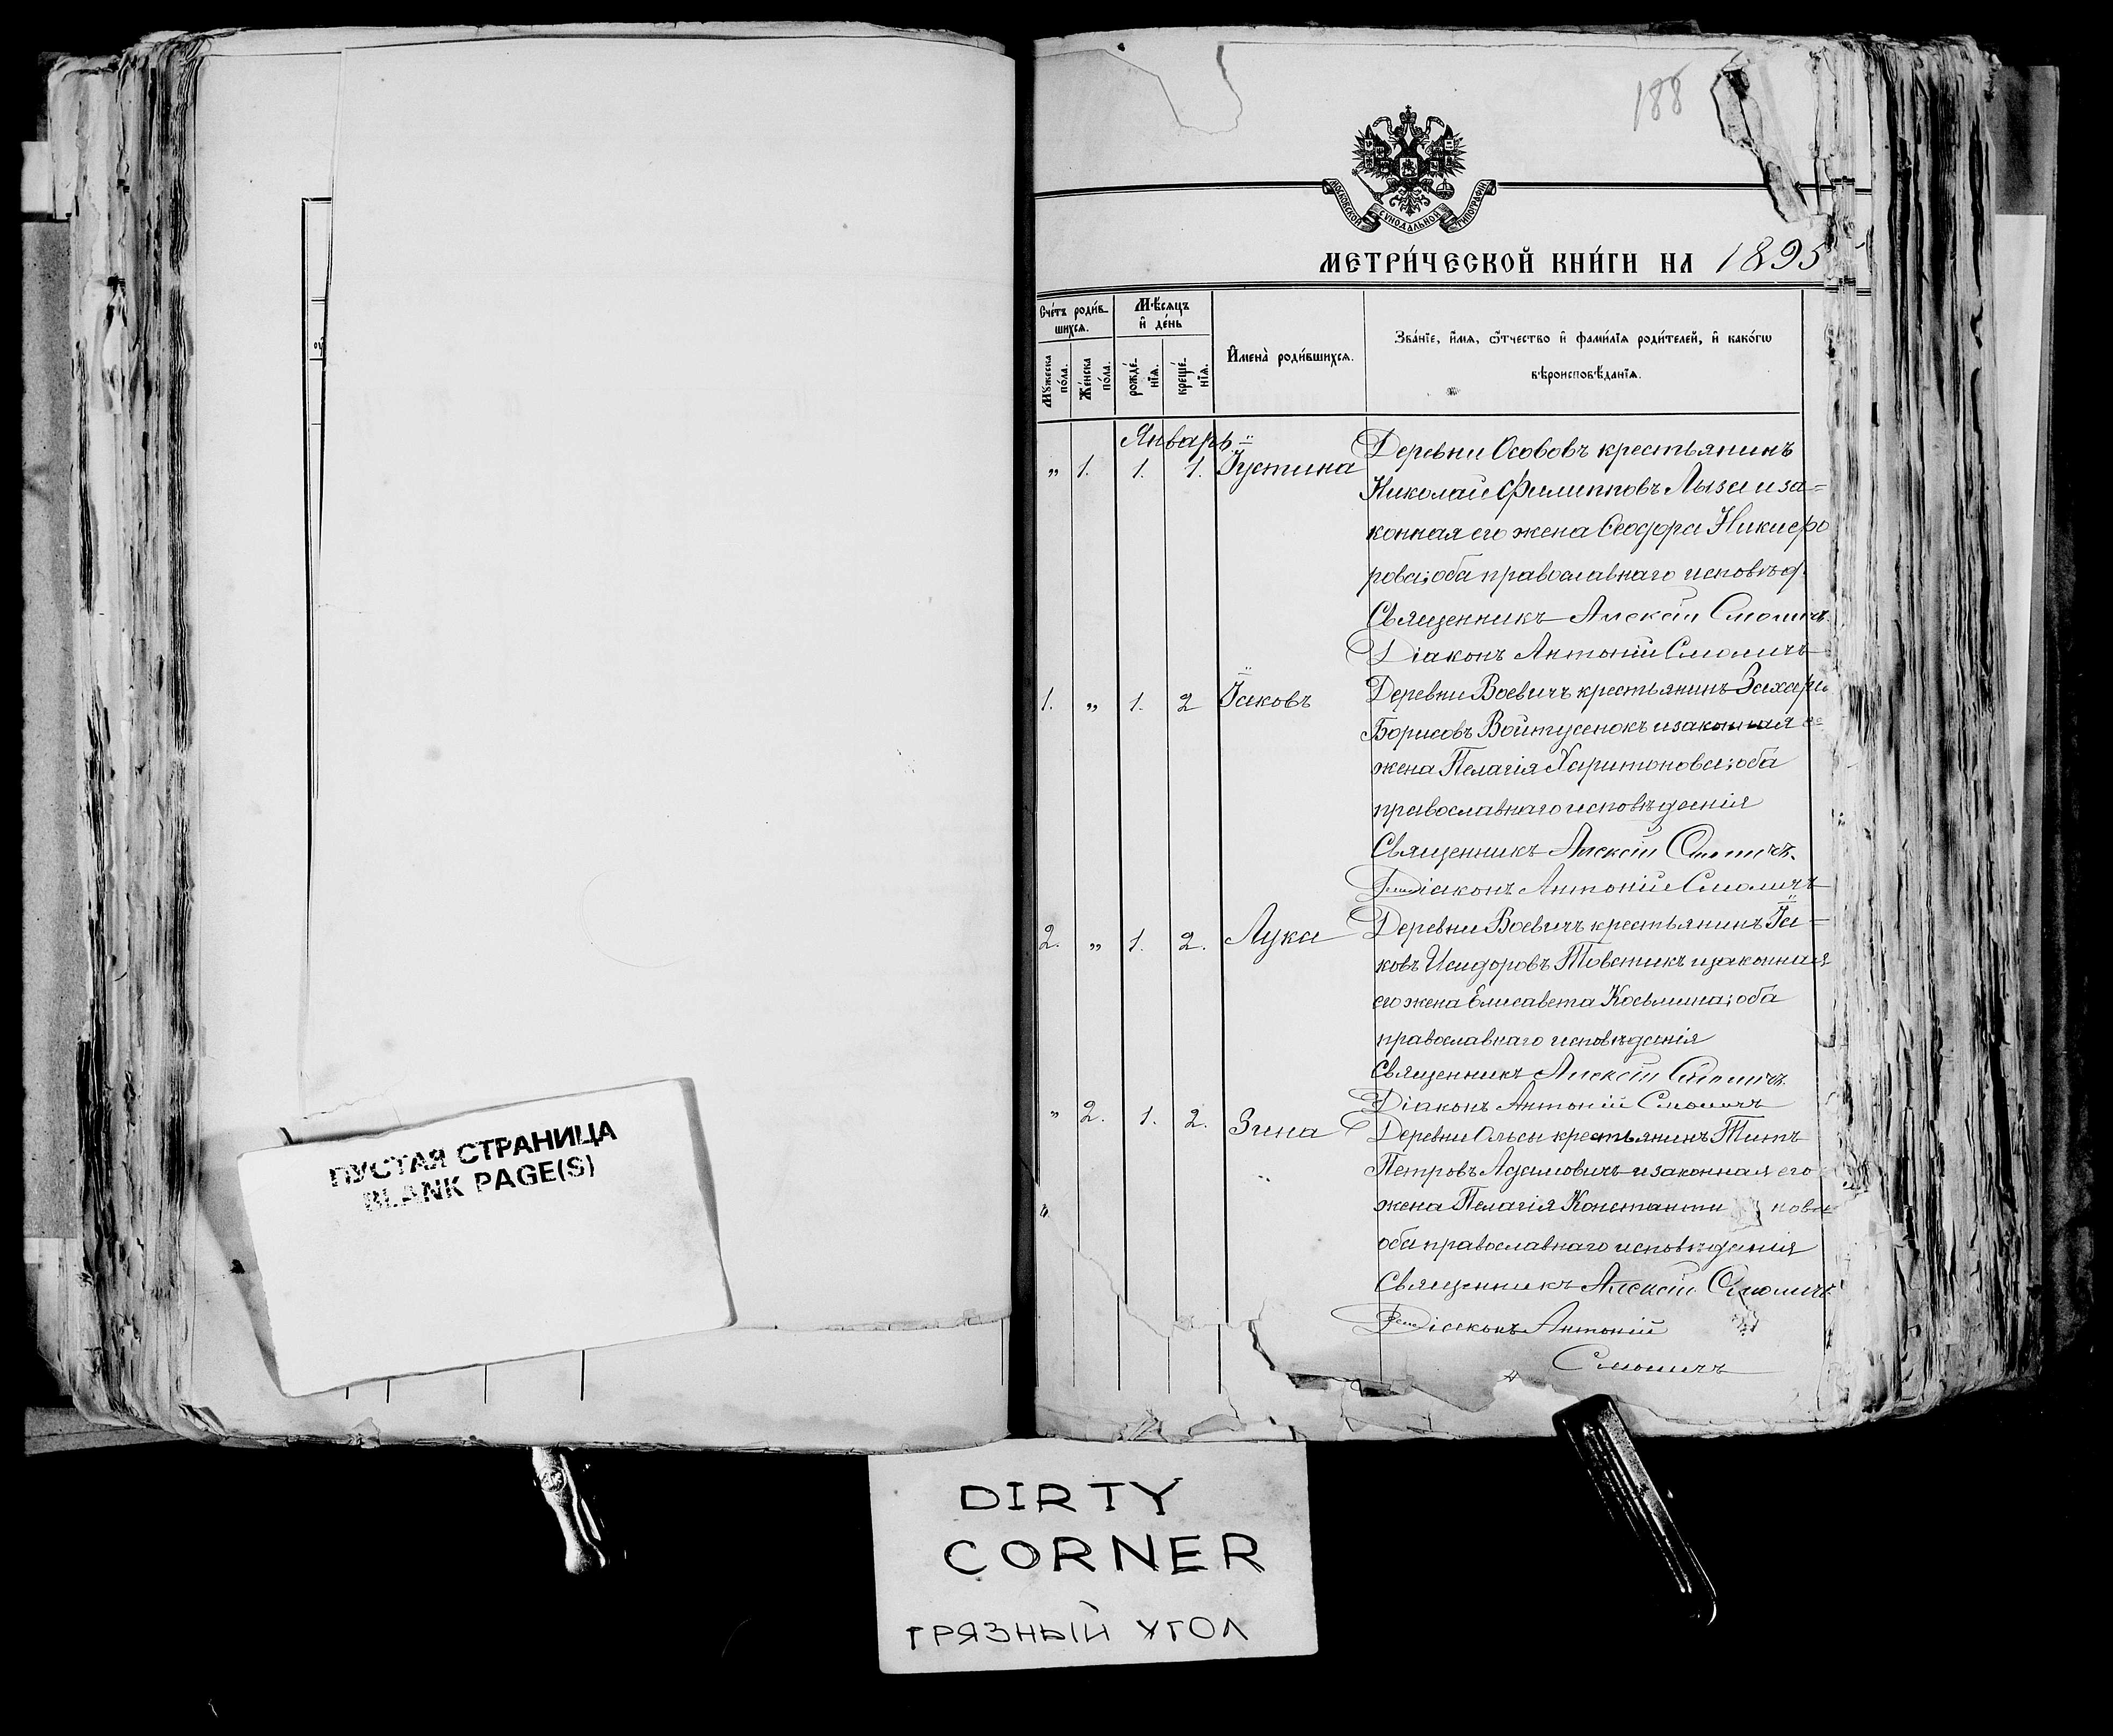 188
МОСКОВСКОЙ СѴНОДАЛЬНОЙ ТИПОГРАФІИ
МЕТРИ́ЧЕСКОЙ КНИ́ГИ НА 1895
Сче́тъ роди́в-
шихсѧ.
Мѣ́сѧцъ
и҆ де́нь
И҆мена̀ роди́вшихсѧ.
Зва́нїе, и҆́мѧ, ѻ҆́тчество и҆ фами́лїѧ роди́телей, и҆ како́гѡ
вѣроисповѣ́данїѧ.
Мꙋ́жеска
по́ла.
Же́нска
по́ла.
рожде́-
нїѧ.
креще́-
нїѧ.
Январь
„ 1. 1. 1. Іустина
Деревни Осововъ крестьянинъ
Николай Филипповъ Лыза и за=
конная его жена Ѳеодора Никифо
рова; оба православнаго исповѣд.
Священникъ Алексій Смоличъ
Діаконъ Антоній Смоличъ
1. „ 1. 2 Іаковъ
Деревни Воевичъ крестьянинъ Захарі
Борисовъ Войтусенокъ и законная е
жена Пелагія Харитонова; оба
православнаго исповѣданія
Священникъ Алексій Смоличъ.
Діаконъ Антоній Смоличъ
2. „ 1. 2. Лука
Деревни Воевичъ крестьянинъ Іа=
ковъ Исидоровъ Товстикъ и законная
его жена Елисавета Косьмина; оба
православнаго исповѣданія
Священникъ Алексій Смоличъ
Діаконъ Антоній Смоличъ
„ 2. 1. 2. Зина
Деревни Ольсы крестьянинъ Титъ
Петровъ Адамовичъ и законная его
жена Пелагія Константи нова
оба православнаго исповѣданія
Священникъ Алексій Смоличъ
Діаконъ Антоній
Смоличъ
ПУСТАЯ СТРАНИЦА
BLANK PAGE(S)
DIRTY
CORNER
ГРЯЗНЫЙ УГОЛ